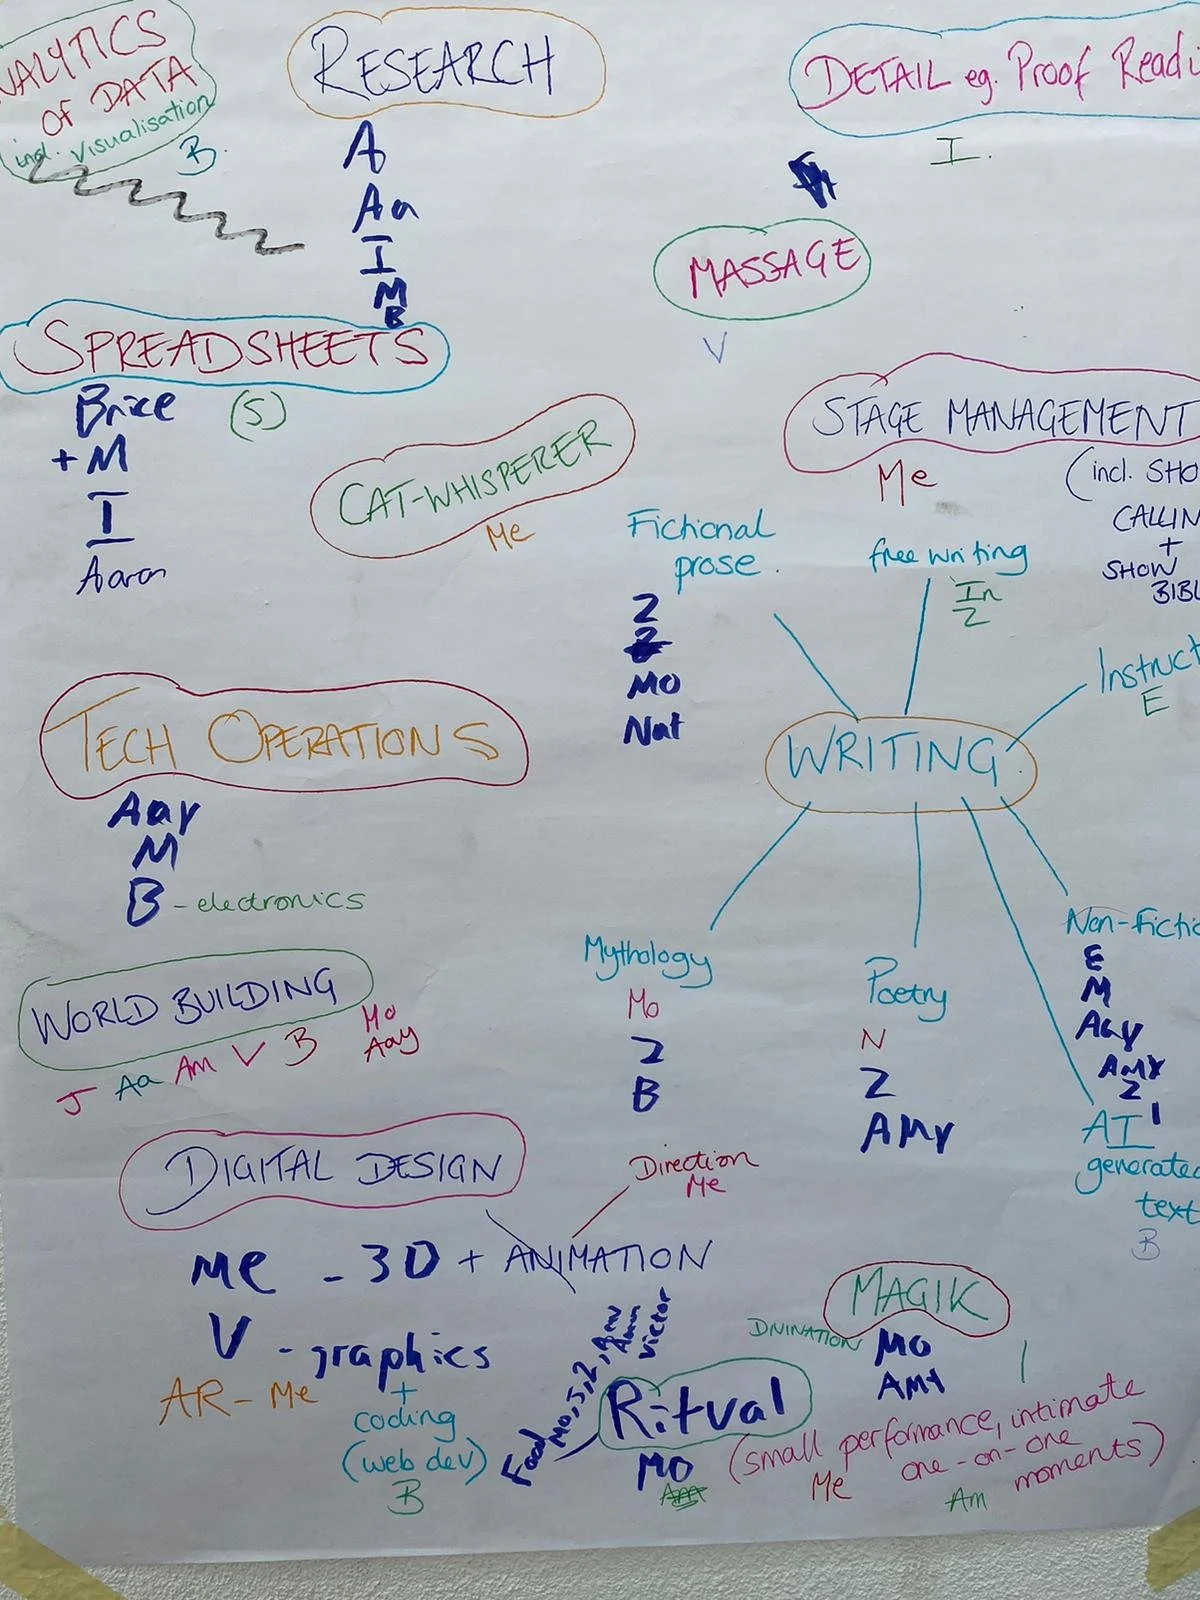 NALYTICS
OF DATA
incl. visualisation
B.
RESEARCH
A
Aa
I
M
B
DETAIL eg. Proof Readi
I.
MASSAGE
V
SPREADSHEETS
Brice
(S)
+ M
I
Aaron
CAT-WHISPERER
Me
STAGE MANAGEMENT
Me
(incl. SHO
CALLIN
+
SHOW
BIBL
Fictional
prose.
Z
MO
Nat
free writing
In
Z
Instruct
E
WRITING
TECH OPERATIONS
Aay
M
B - electronics
WORLD BUILDING
J Aa Am V B Mo
Aay
Mythology
Mo
Z
B
Poetry
N
Z
AMY
Non-fictio
E
M
Aay
AMY
Z
I
AI
generated
text
B
DIGITAL DESIGN
Direction
Me
Me - 3D + ANIMATION
V - graphics
+
coding
(web dev)
B
AR - Me
MAGIK
DIVINATION
MO
AMY
(small performance, intimate
one-on-one
moments)
Me
Am
Ritual
MO
Food
Mo, S, Z,
Aaron
Victor